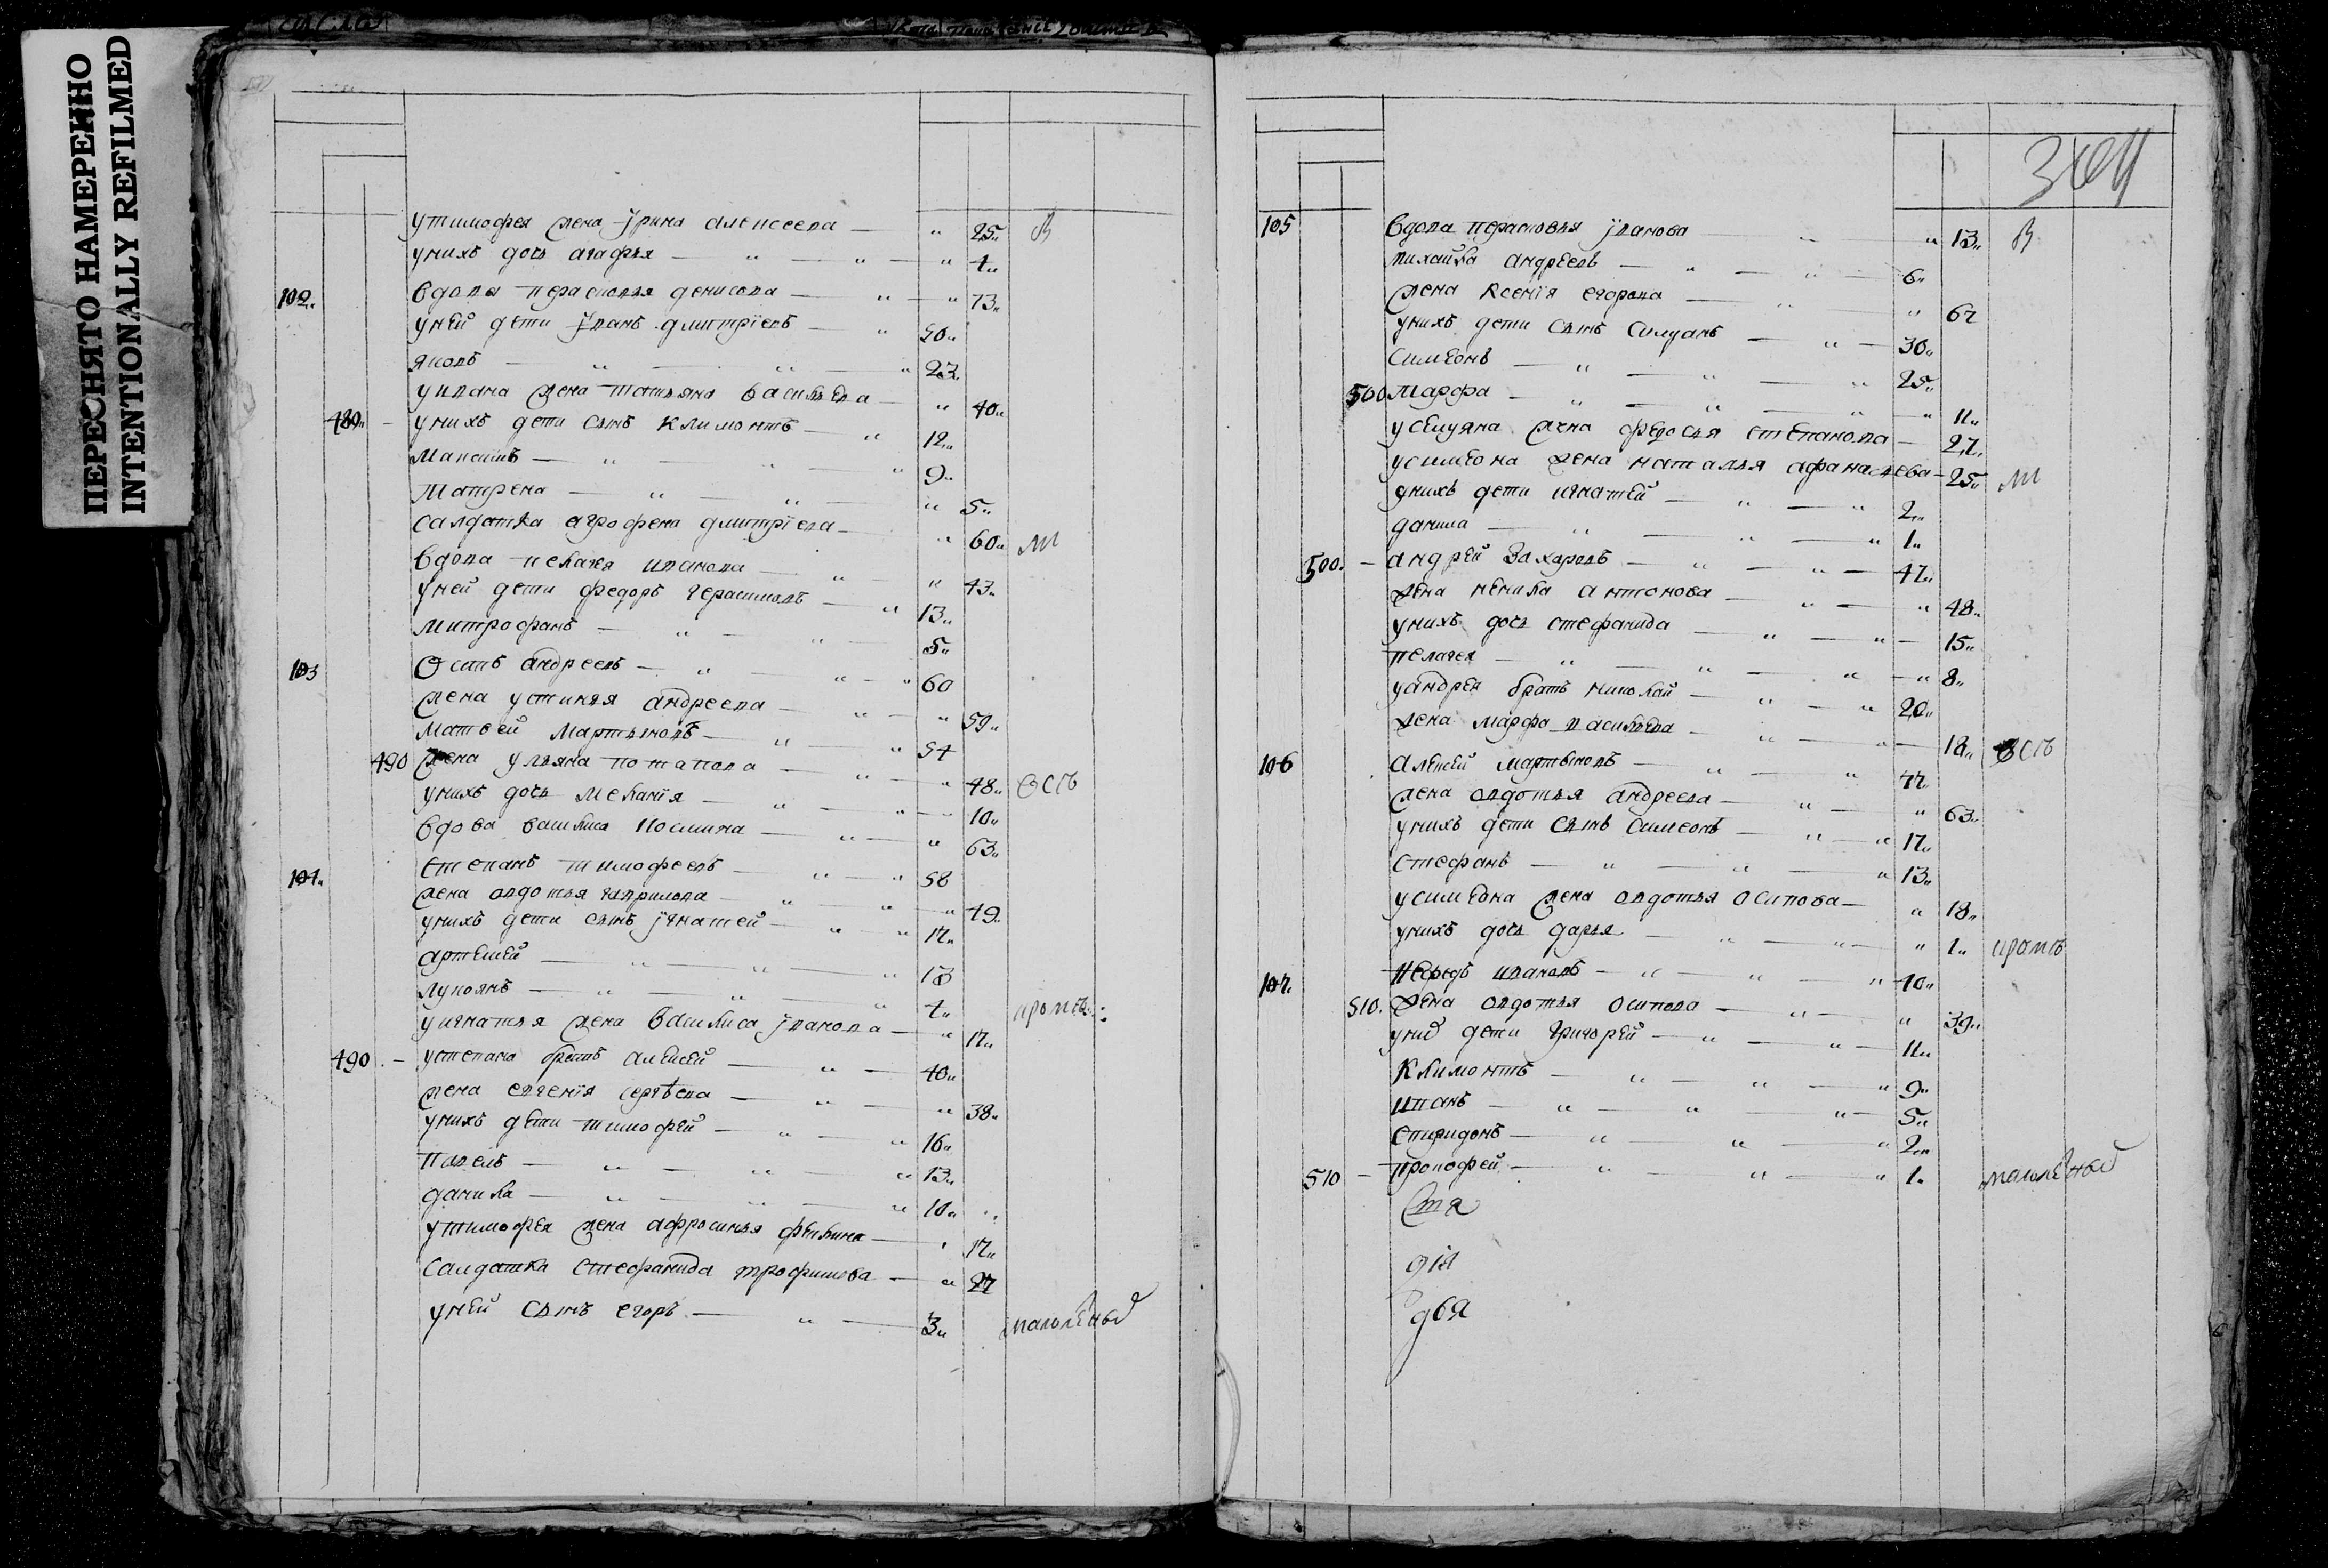 ПЕРЕСНЯТО НАМЕРЕННО
INTENTIONALLY REFILMED
утимофея жена Ірина алексеева — " 25 В
унихъ дочь агафья — " — " — " 4
102 вдова парасковья денисова — " — " 73
уней дети Іванъ дмитріевъ — " 50
Яковъ — " — " — " 23
уивана жена татьяна васильева — " 40
480 — унихъ дети сынъ климонтъ — " 12
Максимъ — " — " — " 9
Матрена — " — " — " 5
салдатка агрофена дмитріева — " 60
вдова пелагея иванова — " — " 43
уней дети федоръ герасимовъ — " 13
митрофанъ — " — " — 5
103 Осипъ андреевъ — " — " — " 60
жена устинья андреева — " — " 59
матвей мартыновъ — " — " 54
490 жена ульяна потапова — " — " 48
унихъ дочь меланія — " — " — 10
вдова василиса козмина — " — " 63
104 степанъ тимофеевъ — " — " 58
жена авдотья гаврилова — " — " — " 49
унихъ дети сынъ ігнатей — " — " 17
артемей — " — " — " 13
лукоянъ — " — " — " 4
уигнатья жена василиса іванова — " 17
490 — устепана братъ алексей — " — 40
жена евгенія сергѣева — " — " 38
унихъ дети тимофей — " — " 16
павелъ — " — " — " 13
данила — " — " — " 10
утимофея жена афросинья — " 17
салдатка стефанида трофимова — " 27
уней сынъ егоръ — " — 3
105 вдова парасковья іванова — " — " 13 В
михайла андреевъ — " — " — 6
жена ксенія егорова — " " 62
унихъ дети сынъ силуанъ — " — 30
симеонъ — " — " — " 25
500 марфа — " — " — " — " 11
усилуяна жена федосья степанова — 27
усимеона жена наталья афанасьева — 25
унихъ дети игнатей — " — " 2
данила — " — " — " 1
500 — андрей захаровъ — " — " — 47
жена ненила антонова — " — " 48
унихъ дочь стефанида — " — " — 15
пелагея — " — " — " — " 8
уандрея братъ николай — " — " 20
жена марфа васильева — " — " — 18
106 алексей мартыновъ — " — " 77
жена авдотья андреева — " — " 63
унихъ дети сынъ симеонъ — " — " 17
стефанъ — " — " — " 13
усимеона жена авдотья осипова — " 18
унихъ дочь дарья — " — " — " 1
107 нефедъ ивановъ — " — " — " 40
510 жена авдотья осипова — " — " 39
уних дети григорей — " — " — 11
климонтъ — " — " — " 9
иванъ — " — " — " — 5
спиридонъ — " — " — " 2
510 — прокофей — " — " — " 1